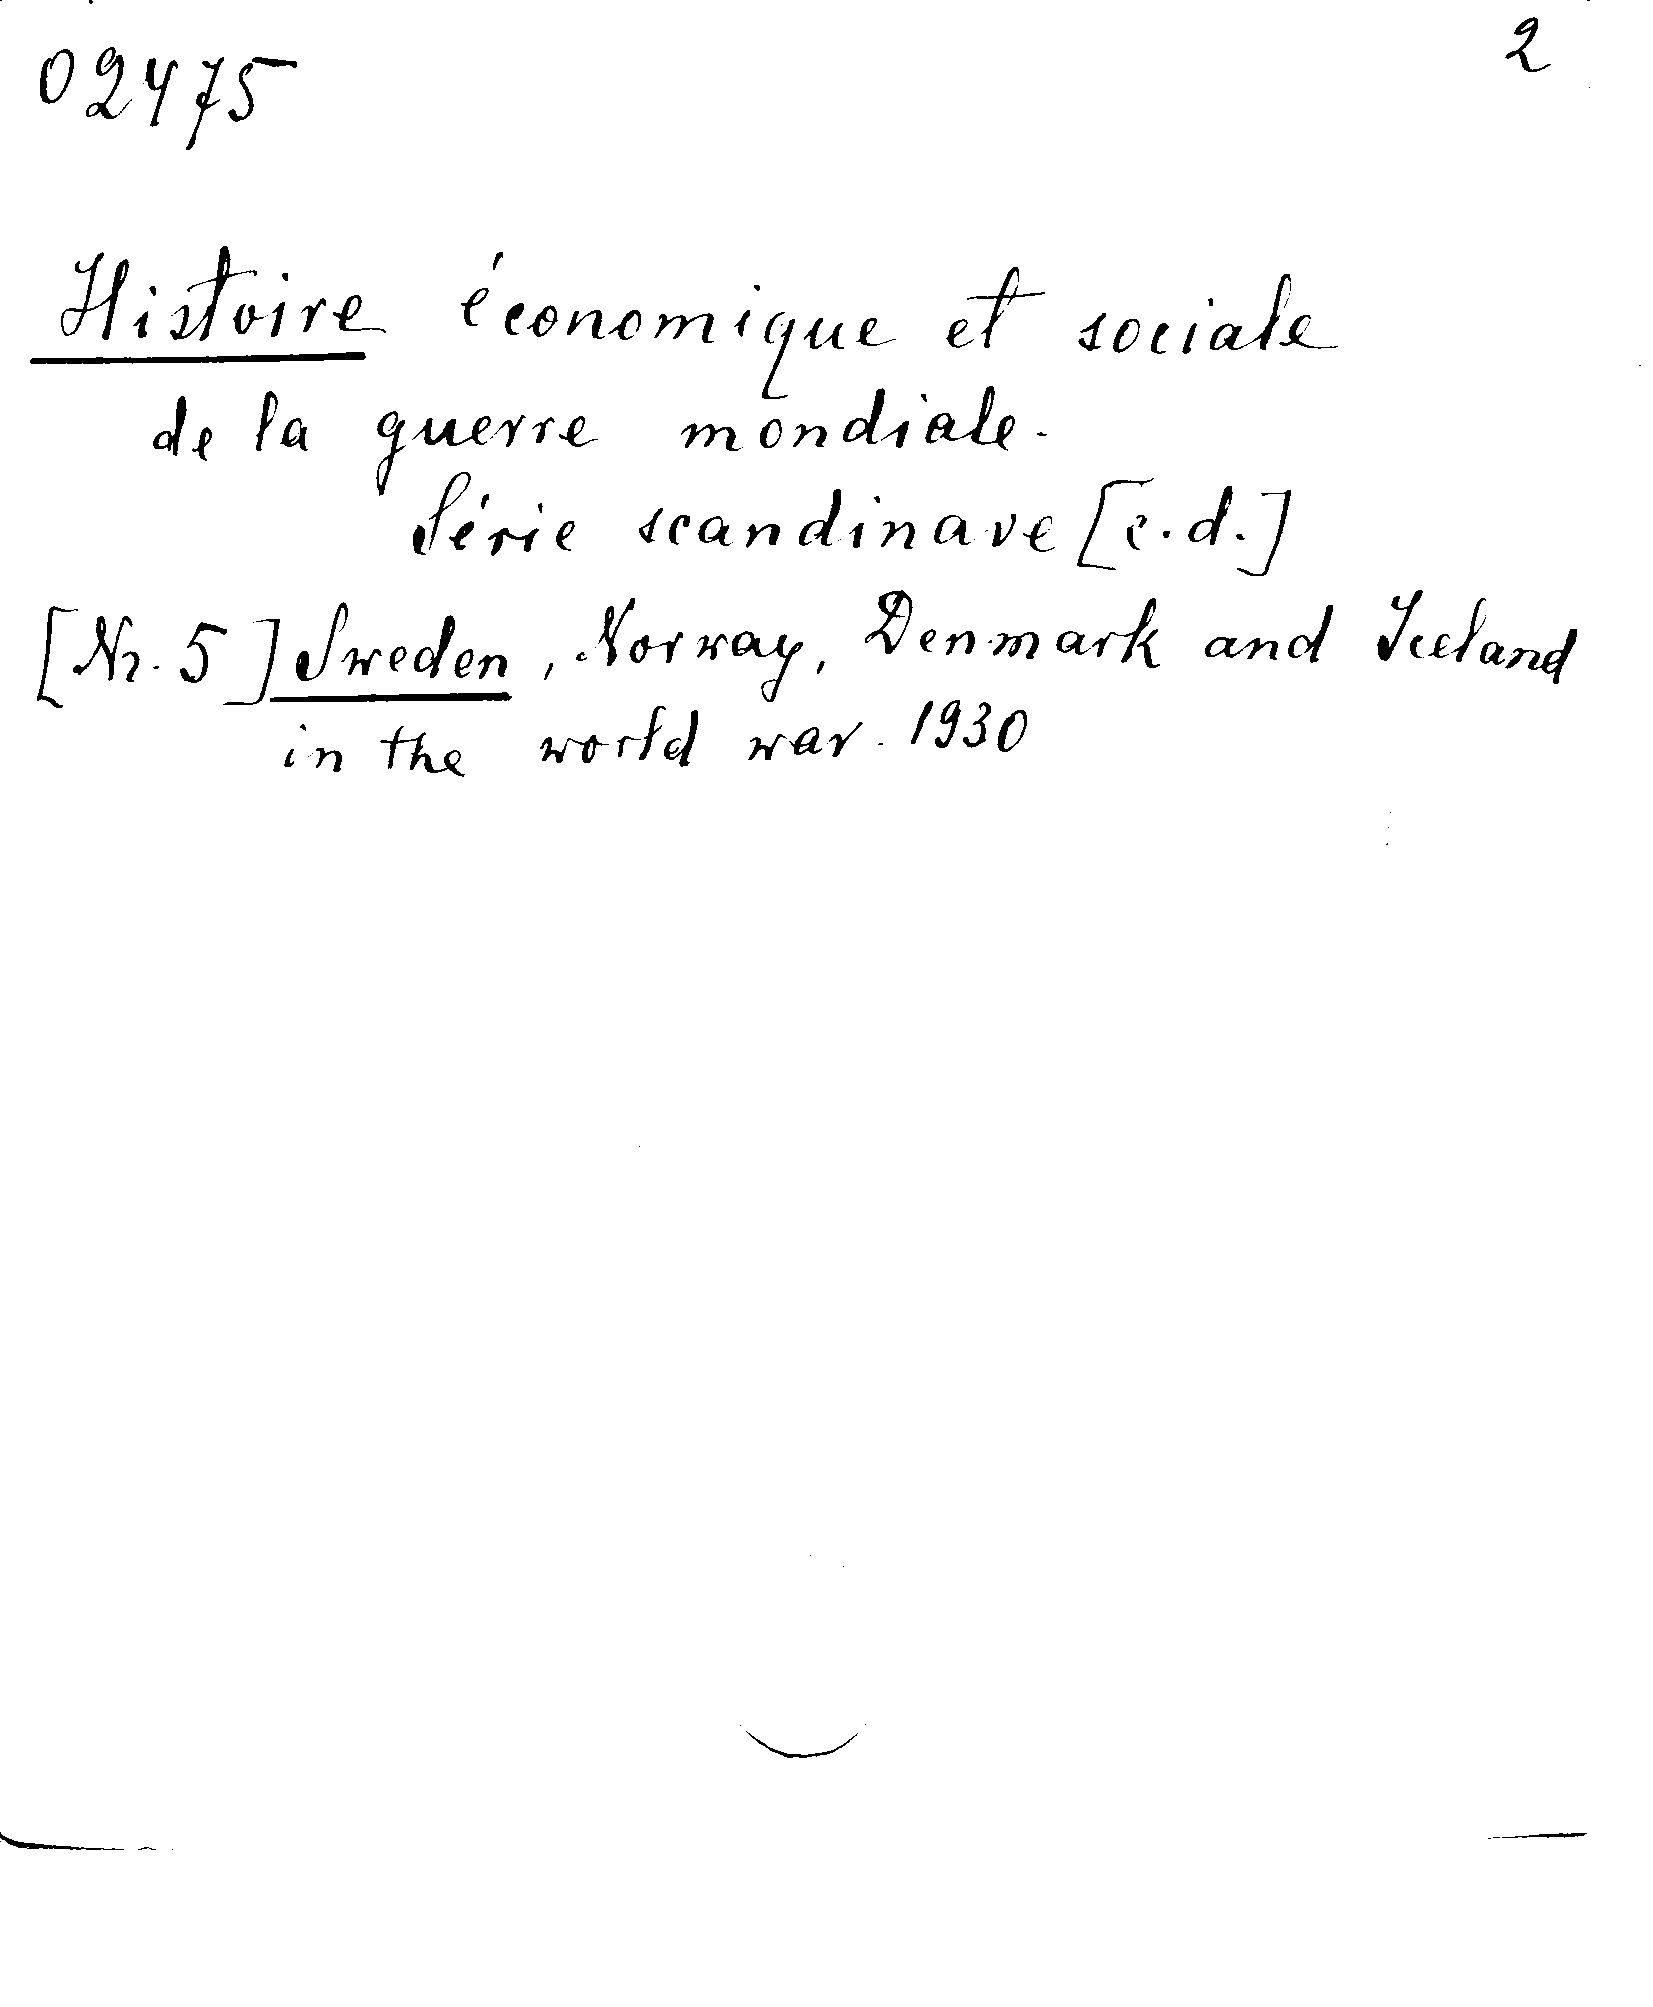 02475
2
Histoire économique et sociale
de la guerre mondiale.
Série scandinave [e.d.]
[Nr. 5] Sweden, Norway, Denmark and Iceland
in the world war. 1930